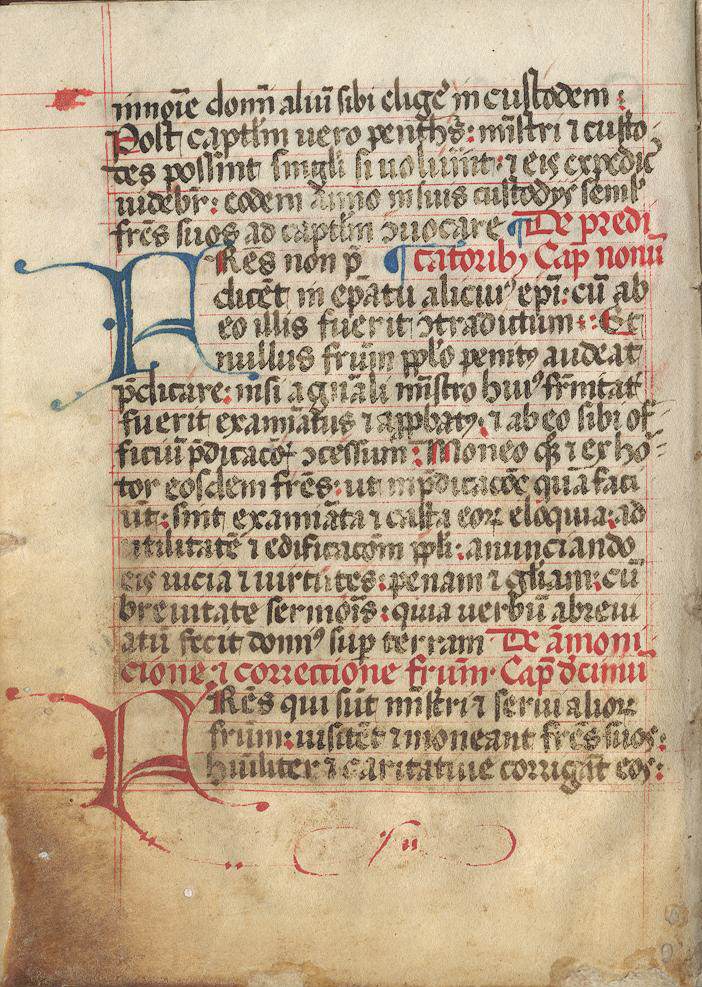 in noīe domī aliū sibi eligē in custodem :
Post captlm uero pentħs : mīstri ⁊ custo
des possint singli si uoluīint : ⁊ eis expedie
uidebr : eodem anno in suis custodijs semł
frēs suos ad captlm ꝯuocare ¶ De predi
Res non p̄ ¶ catoribꝫ Cap̄ nonū
dicēt in ep̄atu alicuiꝰ ep̄i : cū ab
eo illis fuerit ꝯtradictum : Et
nullus frūm pplo penitꝰ audeat
p̄dicare : nisi a gn̄ali mīstro huiꝰ frn̄itat
fuerit examiātus ⁊ appbatꝰ : ⁊ ab eo sibi of
ficiū p̄dicacōꝭ ꝯcessum : Moneo qꝫ ⁊ exho
tor eosdem frēs : ut in p̄dicacōe quā faci
ūt : sint examiāta ⁊ casta eoꝝ eloquia : ad
utilitatē ⁊ edificacōm ppli : anunciando
eis uicia ⁊ uirtutes : penam ⁊ gliam : cū
breuitate sermoīs : quia uerbū abreui
atū fecit domīꝰ sup terram De āmoni
cione : ⁊ correctione frūm · Cap̄ dcimū
Rēs qui sūt mīstri ⁊ serui alioꝝ
frum : uisitēt ⁊ moneant frēs suos :
hūiliter ⁊ caritatiue corrigāt eos :